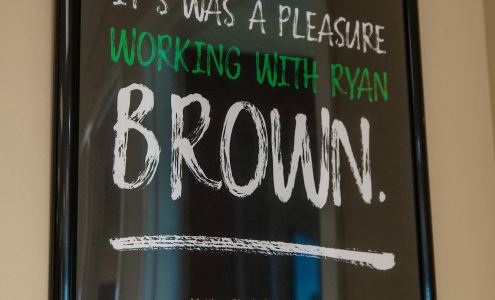 IT'S WAS A PLEASURE
WORKING WITH RYAN
BROWN.